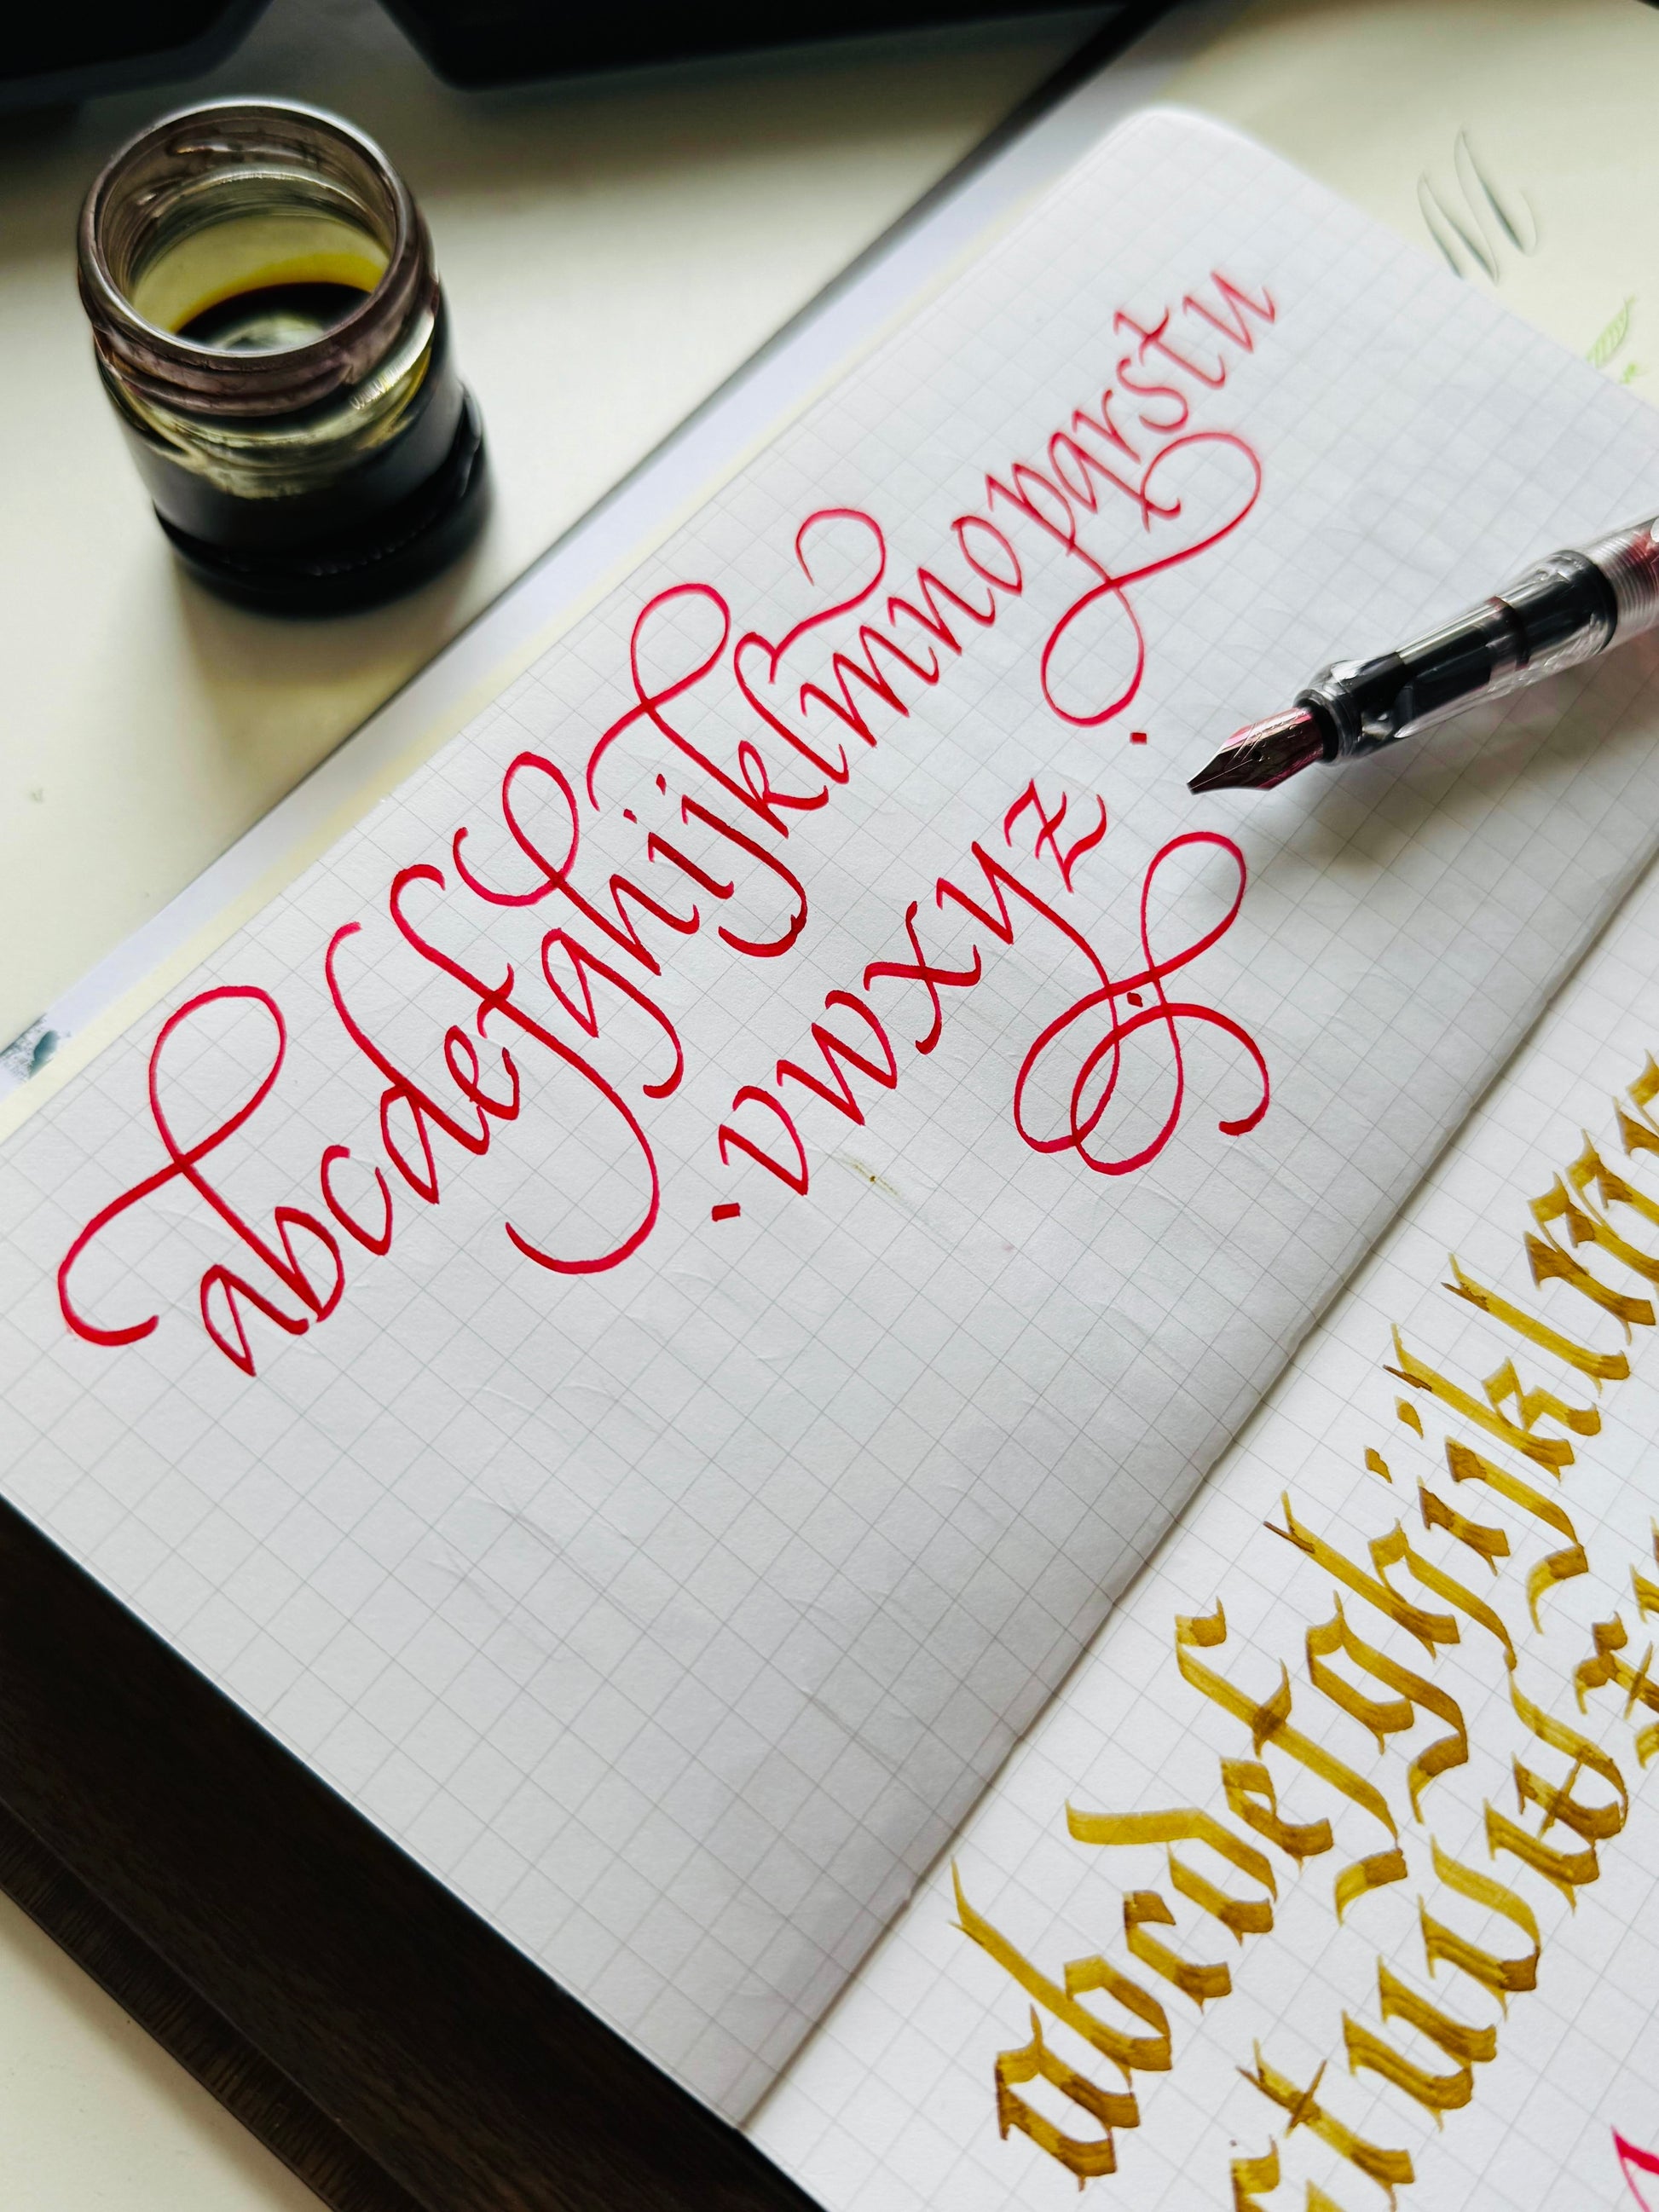 abcdefghijklmnopqrstu
· vwxyz ·
abcdefghijklm
stuvwx